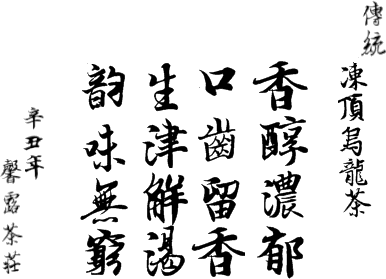 傳統
凍頂烏龍茶
香醇濃郁
口齒留香
生津解渴
韵味無窮
辛丑年
馨露茶莊